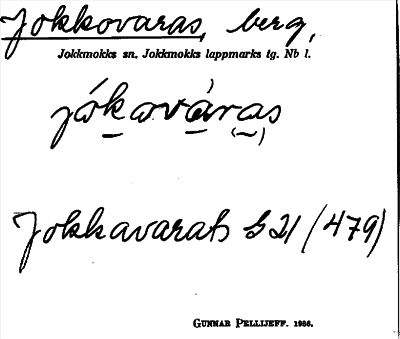 Jokkovaras, berg,
Jokkmokks sn, Jokkmokks lappmarks tg. Nb l.
jókaváras
Jokkavarats S21 (479)
GUNNAR PELLIJEFF. 1966.